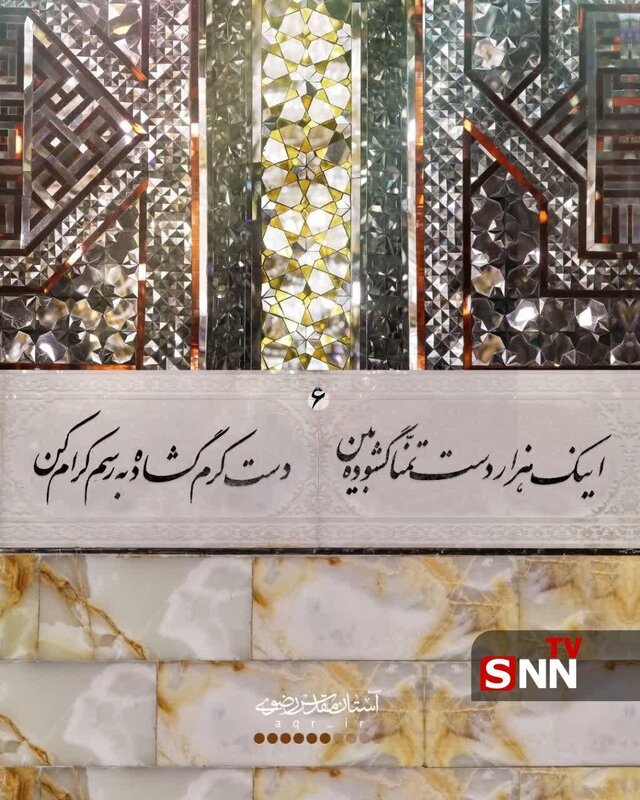 ۶
اینک هزار دست تمنّا گشوده بین
دست کرم گشاده به رسم کرام کن
SNN TV
آستان قدس رضوی
aqr_ir